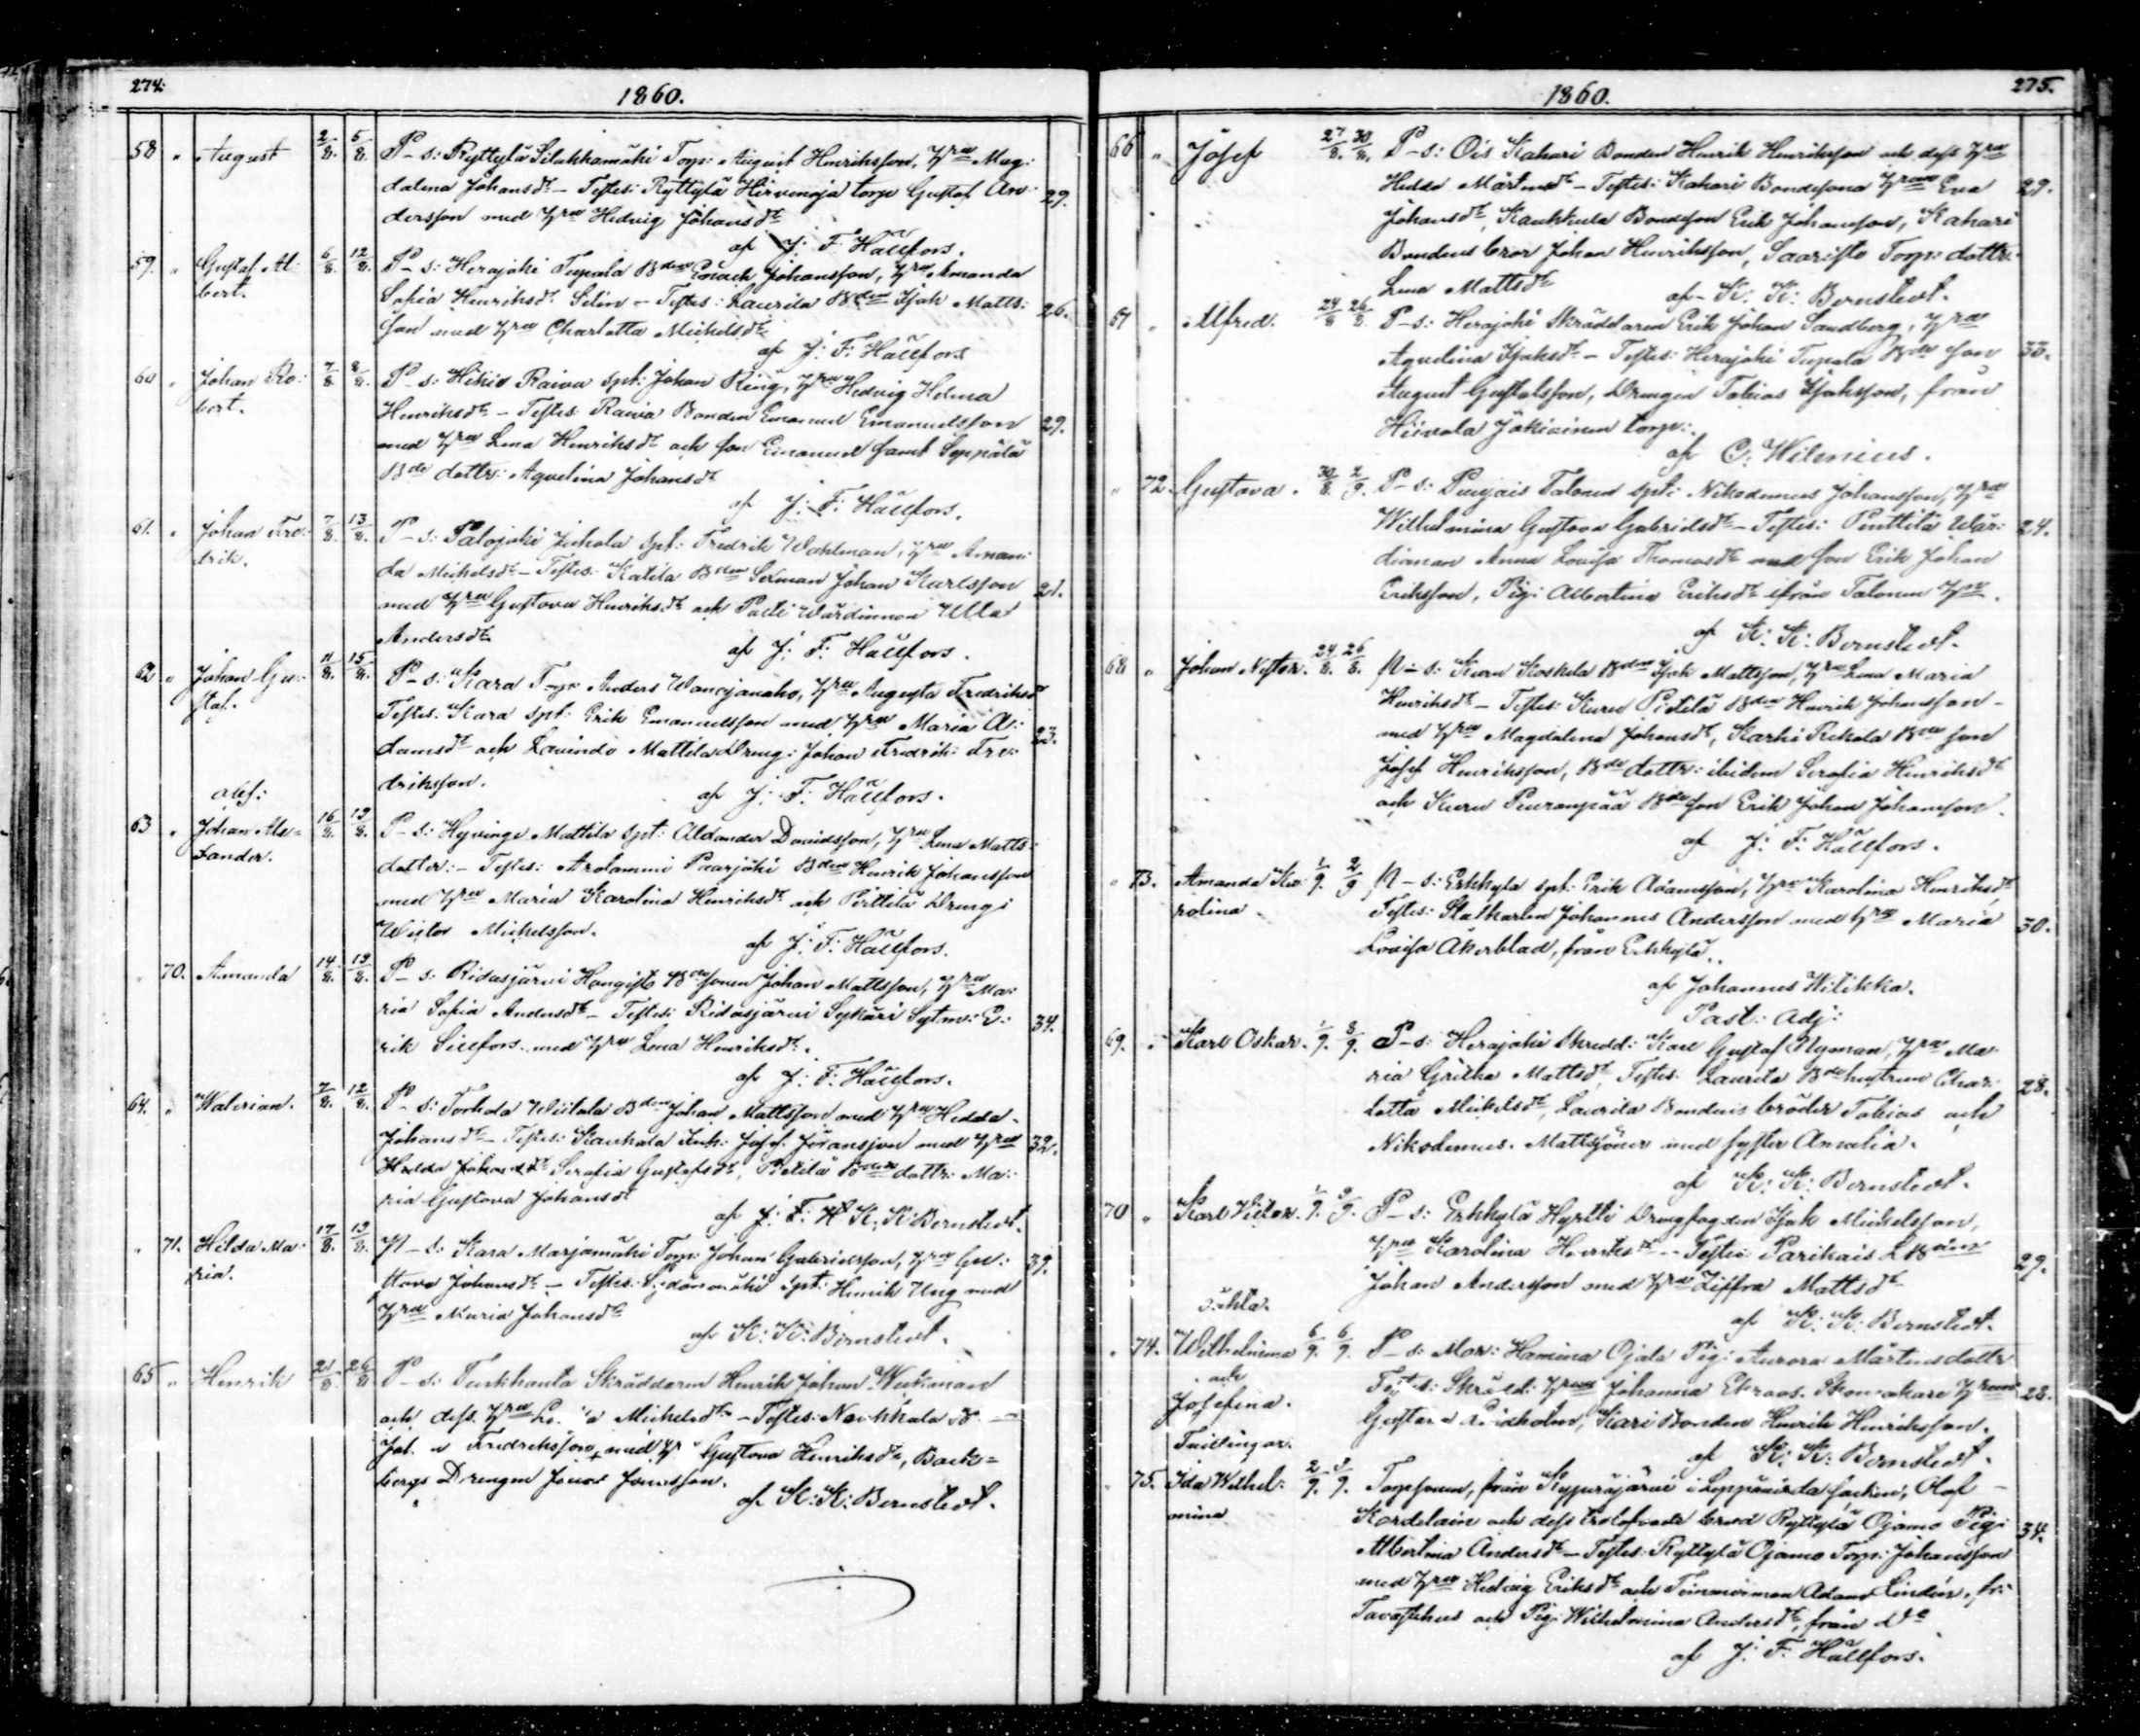 274.
1860.
58 " August 2/8. 5/8. P-s: Ryttylä Silakkamäki Torp: August Henriksson, hru Mag:
dalena Johansdr – Testes: Ryttylä Hirvenoja torp Gustaf An: 29.
dersson med hru Hedvig Johansdr
af J: F: Hällfors.
59. " Gustaf Al: 6/8. 12/8. P-s: Herajoki Tupala Bden Enoch Johansson, hru Amanda
bert. Sofia Henriksdr Selin – Testes: Laurila Bden Isak Matts: 26.
son med hru Charlotta Michelsdr
af J: F: Hällfors
60 " Johan Ro: 7/8. 8/8. P-s: Hikiä Raiva spt: Johan Ring, hru Hedvig Helena
bert. Henriksdr – Testes Raiva Bonden Emanuel Emanuelsson 29.
med hru Lena Henriksdr och son Emanuel samt Seppälä
Bde dottr: Aqvelina Johansdr
af J: F: Hällfors.
61. " Johan Fre: 7/8. 13/8. P-s: Palojoki Juhola spt: Fredrik Wahlman, hru Aman:
drik. da Michelsdr – Testes: Katila Bden Sexman Johan Karlsson 21.
med hru Gustava Henriksdr och Värdinnan Ulla
Andersdr
af J: F: Hällfors.
62 " Johan Gu: 11/8. 15/8. P-s: Kara Torp: Anders hru Augusta Fredriksdr
staf. Testes: Kara spt: Erik Emanuelsson med hru Maria A: 23.
damsdr och Mattila Dreng: Johan Fredrik Fre:
driksson.
af J: F: Hällfors.
63 " Johan Ale= 16/8. 19/8. P-s: Hyvinge Mattila spt: Alexander Davidsson, hru Lena Matts:
xander. dotter: – Testes: Arolammi Paarjoki Bden Henrik Johansson
med hru Maria Karolina Henriksdr och Pirttilä Dreng:
Victor Michelsson.
af J: F: Hällfors.
" 70. Amanda 14/8. 19/8. P-s: Ridasjärvi Hongisto Bdesonen Johan Mattsson, hru Ma:
ria Sofia Andersdr – Testes: Ridasjärvi Sytm: E: 34.
rik Sillfors med hru Lena Henriksdr.
af J: F: Hällfors.
64. " Walerian. 7/8. 12/8. P-s: Torhola Wiitala Bden Johan Mattsson med hru Hedda
Johansdr – Testes: Kaukola Josef Göransson med hru 32.
Hedda Johansdr Serafia Gustafsdr, Pietilä dottr: Ma:
ria Gustava Johansdr
af J: F: H K: K: Bernstedt.
" 71. Hilda Ma: 17/8. 19/8. P-s: Kara Marjamäki Torp: Johan Gabrielsson, hru Gu: 39.
ria. stava Johansdr – Testes: spt: Henrik Ung med
hru Maria Johansdr
af K: K: Bernstedt.
65 " Henrik 21/8. 26/8. P-s: Skräddaren Henrik Johan
och dess hru Michelsdr – Testes: Naukkala
Joh. Fredriksson med Gustava Henriksdr, Back=
bergs Drengen
af K: K: Bernstedt.
1860.
275.
66 " Josef 27/8. 30/8. P-s: Ois Kahari Bonden Henrik Henriksson och dess hru
Hedda Mårtensdr – Testes: Kahari Bondesona hrun Eva 29.
Johansdr, Kaukkula Bondeson Erik Johansson, Kahari
Bondens bror Johan Henriksson, Saaristo Torp: dottr:
Lena Mattsdr
af K: K: Bernstedt.
67 " Alfred. 24/8 26/8. P-s: Herajoki Skräddaren Erik Johan Sandberg, hru
Aqvelina Isaksdr – Testes: Herajoki Tupala Bde son 33.
August Gustafsson, Drengen Tobias Isaksson, från
Hiivola torp:.
af C: Wilenius.
" 72. Gustava. 30/8. 2/9. P-s: Talonen spt: Nikodemus Johansson, hru
Wilhelmina Gustava Gabrielsdr – Testes: Penttilä Wär: 24.
dinnan Anna Lovisa Thomasdr med son Erik Johan
Eriksson, Pig: Albertina Eriksdr ifrån Talonen
af K: K: Bernstedt.
68 " Johan Nestor. 24/8. 26/8. P-s: Kuru Koskela Bden Isak Mattsson, hru Lena Maria
Henriksdr – Testes: Kuru Pietilä Bden Henrik Johansson
med hru Magdalena Johansdr, Karhi Rekola Bden son
Josef Henriksson, Bde dottr: ibidem Serafia Henriksdr
och Kuru Peuranpää Bde son Erik Johan Johansson.
af J: F: Hällfors.
" 73. Amanda Ka: 1/9. 2/9 P-s: Erkkylä spt: Erik Adamsson, hru Karolina Henriksdr
rolina. Testes: Statkarlen Johannes Andersson med hru Maria 30.
Lovisa Åkerblad, från Erkkylä.
af Johannes Witikka.
Past: Adj:
69. " Karl Oskar. 1/9. 8/9. P-s: Herajoki Skredd: Karl Gustaf Nyman, hru Ma:
ria Gritha Mattsdr, Testes: Laurila Bdehustrun Char: 28.
lotta Mickelsdr, Laurila Bondens bröder Tobias och
Nikodemus Mattssöner med syster Amalia.
af K: K: Bernstedt.
70 " Karl Victor. 1/9. 9/9. P-s: Erkkylä Hyrlli Drengfogden Isak Michelsson,
hru Karolina Henriksdr – Testes: Parikais
Johan Andersson med hru Ziffra Mattsdr 29.
af K: K: Bernstedt.
oäkta.
" 74. Wilhelmina 6/9. 6/9. P-s: Mar: Hamina Ojala Pig: Aurora Mårtensdottr
och Testes: Skrädd: hrun Johanna Skomakare hrun 28.
Josefina. Gustava Kari Bonden Henrik Henriksson.
Tvillingar. af K: K: Bernstedt.
" 75. Ida Wilhel: 2/9. 9/9. Torpsonen, från i Loppi socken, Olof
mina Kordelain och dess trolofvade brud Ryttylä Ojamo Pig: 34.
Albertina Andersdr – Testes: Ryttylä Ojamo Torp: Johansson
med hru Hedvig Eriksdr och Timmerman Adam Lindén, fr:
Tavastehus och Pig: Wilhelmina Andersdr, från
af J: F: Hällfors.